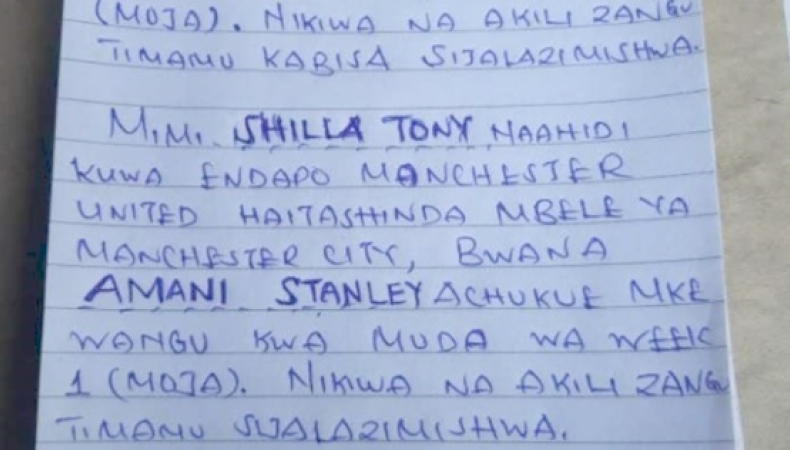 (MOJA). NIKIWA NA AKILI ZANGU
TIMAMU KABISA SIJALAZIMISHWA.
MIMI SHILLA TONY NAAHIDI
KUWA ENDAPO MANCHESTER
UNITED HAITASHINDA MBELE YA
MANCHESTER CITY, BWANA
AMANI STANLEY ACHUKUE MKE
WANGU KWA MUDA WA WEEK
1 (MOJA). NIKIWA NA AKILI ZANGU
TIMAMU SIJALAZIMISHWA.